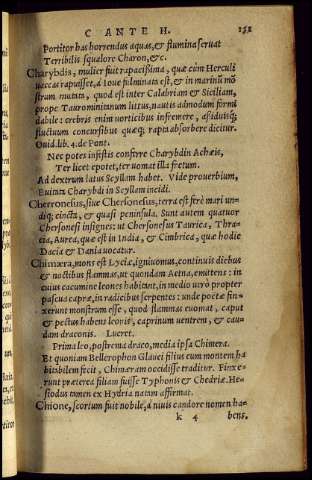 C ANTE H. 152
Portitor has horrendus aquas, & flumina seruat
Terribili squalore Charon, &c.
Charybdis, mulier fuit rapacissima, quæ cùm Herculi
vaccas rapuisset, à Ioue fulminata est, & in marinũ mõ
strum mutata, quod est inter Calabriam & Siciliam,
prope Taurominitanum litus, nautis admodum formi
dabile: crebris enim vorticibus infremere, assiduisq;
fluctuum concursibus quæq; rapta absorbere dicitur.
Ouid. lib. 4. de Pont.
Nec potes infestis conferre Charybdin Achæis,
Ter licet epotet, ter vomat illa fretum.
Ad dextrum latus Scyllam habet. Vide prouerbium,
Euitata Charybdi in Scyllam incidi.
Cherronesus, siue Chersonesus, terra est ferè mari undi
q; cincta, & quasi peninsula. Sunt autem quatuor
Chersonesi insignes: ut Chersonesus Taurica, Thra=
cia, Aurea, quæ est in India, & Cimbrica, quæ hodie
Dacia & Dania uocatur.
Chimæra, mons est Lyciæ, igniuomus, continuis diebus
& noctibus flammas, ut quondam Aetna, emittens: in
cuius cacumine leones habitant, in medio uerò propter
pascua capræ, in radicibus serpentes: unde poetæ fin=
xerunt monstrum esse, quod flammas euomat, caput
& pectus habens leonis, caprinum uentrem, & cau=
dam draconis. Lucret.
Prima leo, postrema draco, media ipsa Chimera.
Et quoniam Bellerophon Glauci filius eum montem ha
bitabilem fecit, Chimæram occidisse traditur. Finxe
runt præterea filiam fuisse Typhonis & Chedriæ. He=
siodus tamen ex Hydria natam affirmat.
Chione, scortum fuit nobile, à niuis candore nomen ha=
k 4 bens.